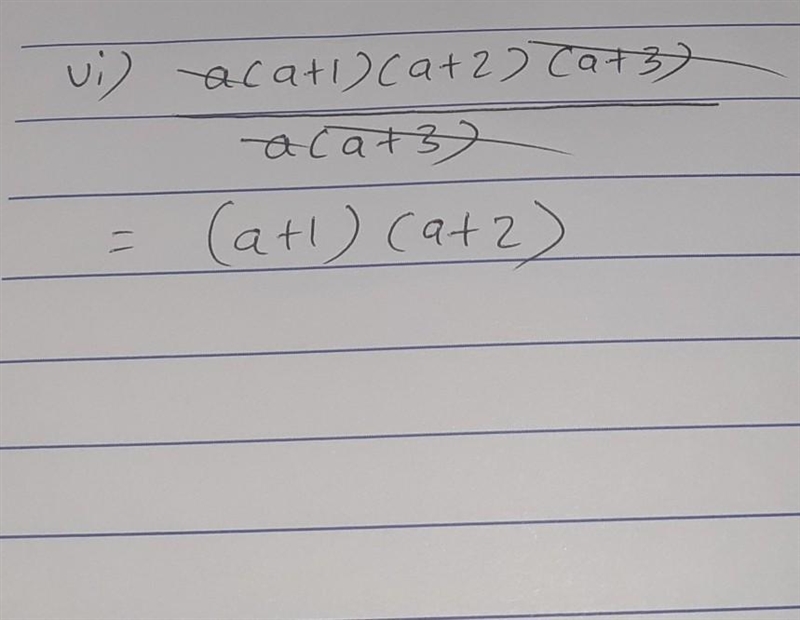 vi) a(a+1)(a+2)(a+3)
a(a+3)
= (a+1)(a+2)